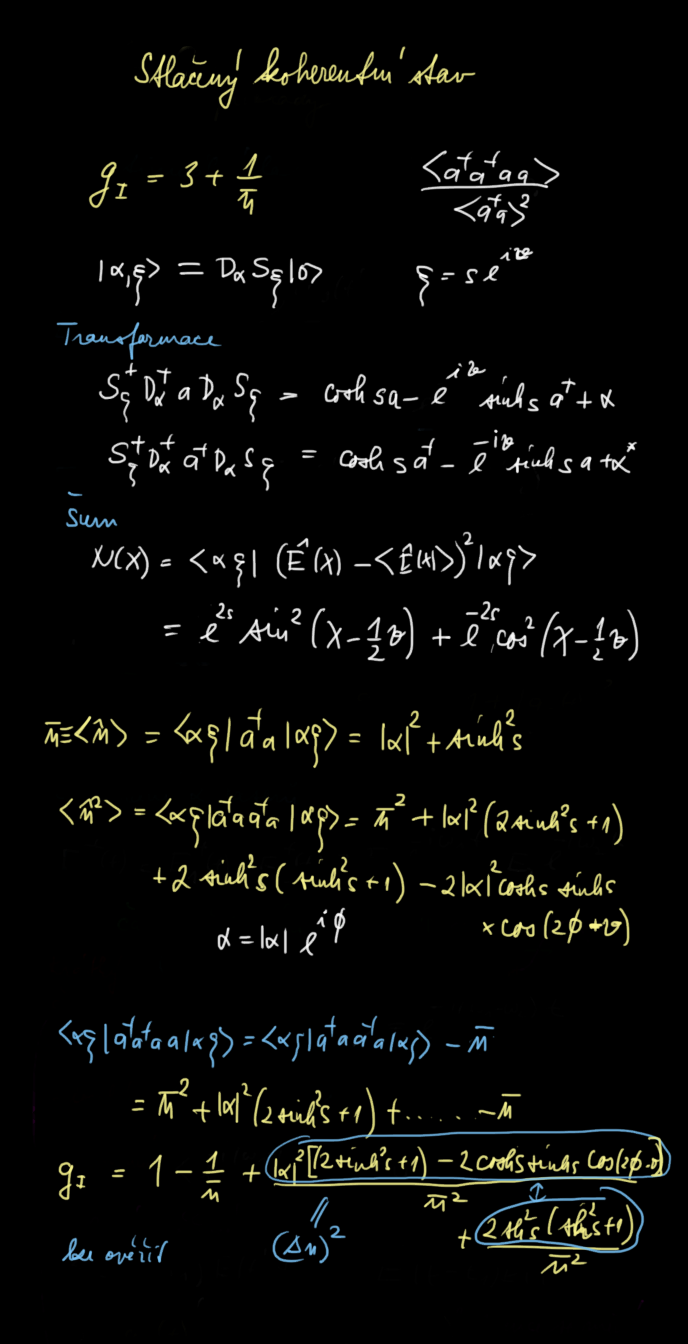 Stlačený koherentní stav
g_I = 3 + 1/n̄    <a†a†aa> / <a†a>²
|α,ξ> = D_α S_ξ |0>    ξ = s e^{iϑ}
Transformace
S_ξ† D_α† a D_α S_ξ = cosh s a − e^{iϑ} sinh s a† + α
S_ξ† D_α† a† D_α S_ξ = cosh s a† − e^{−iϑ} sinh s a + α*
Šum
N(χ) = <αξ| (Ê(χ) − <Ê(χ)>)² |αξ>
= e^{2s} sin² (χ − ½ϑ) + e^{−2s} cos² (χ − ½ϑ)
n̄ ≡ <n̂> = <αξ| a†a |αξ> = |α|² + sinh² s
<n̂²> = <αξ|a†aa†a |αξ> = n̄² + |α|² (2 sinh² s + 1)
+ 2 sinh² s (sinh² s + 1) − 2|α|² cosh s sinh s
α = |α| e^{iϕ}    × cos (2ϕ + ϑ)
<αξ|a†a†aa|αξ> = <αξ|a†aa†a|αξ> − n̄
= n̄² + |α|² (2 sinh² s + 1) + ...... − n̄
g_I = 1 − 1/n̄ + |α|² [(2 sinh² s + 1) − 2 cosh s sinh s cos(2ϕ − ϑ)] / n̄²
+ 2 sh² s (sh² s + 1) / n̄²
lze ověřit    (Δn)²